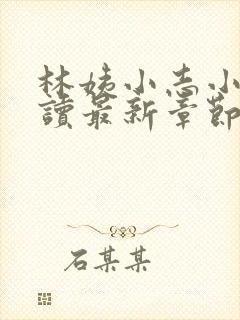 林姨小志小
讀最新章節
石某某